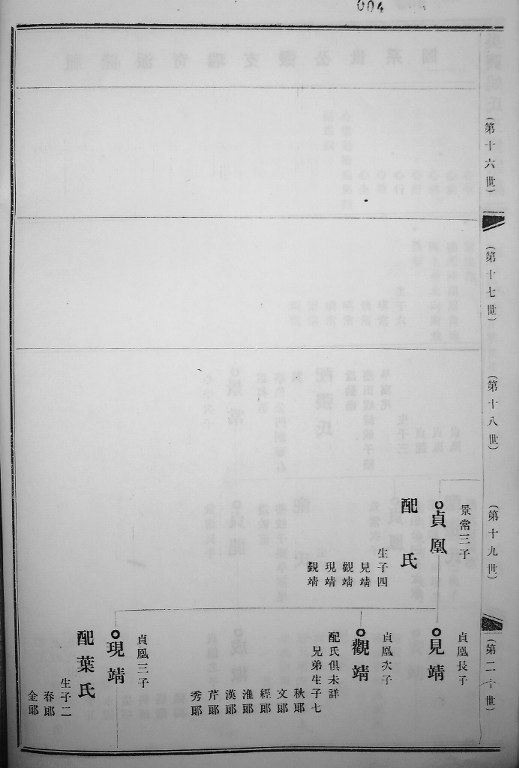 004
(第十六世)
(第十七世)
(第十八世)
(第十九世)
(第二十世)
景常三子
貞凰
配 氏
生子四
見靖
觀靖
現靖
貞凰長子
見靖
貞凰次子
觀靖
配氏俱未詳
兄弟生子七
秋郎
文郎
經郎
淮郎
漢郎
芹郎
秀郎
貞凰三子
現靖
配葉氏
生子二
春郎
金郎